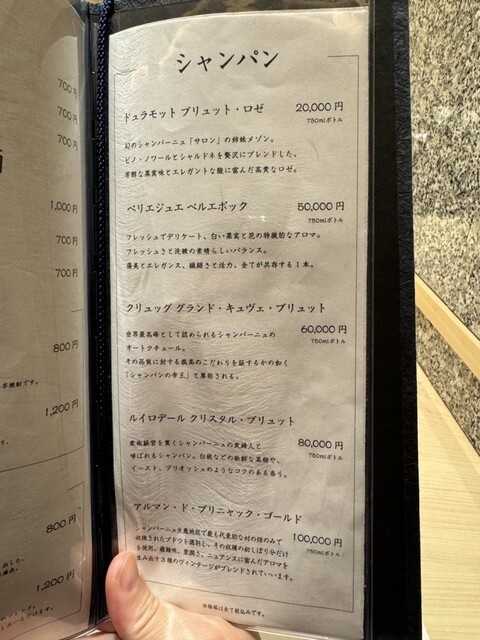 700 円
700 円
700 円
1,000 円
700 円
700 円
800 円
1,200 円
800 円
1,200 円
シャンパン
ドュラモット ブリュット・ロゼ 20,000 円
750mlボトル
幻のシャンパーニュ「サロン」の姉妹メゾン。
ピノ・ノワールとシャルドネを贅沢にブレンドした、
芳醇な果実味とエレガントな酸に富んだ高貴なロゼ。
ペリエジュエ ベルエポック 50,000 円
750mlボトル
フレッシュでデリケート、白い果実と花の特徴的なアロマ。
フレッシュさと洗練の素晴らしいバランス。
優美とエレガンス、繊細さと活力、全てが共存する1本。
クリュッグ グランド・キュヴェ・ブリュット
60,000 円
750mlボトル
世界最高峰として認められるシャンパーニュの
オートクチュール。
その品質に対する至高のこだわりを証するかの如く
「シャンパンの帝王」と尊称される。
ルイロデール クリスタル・ブリュット
80,000 円
750mlボトル
家族経営を貫くシャンパーニュの貴婦人と
呼ばれるシャンパン。白桃などの新鮮な果物や、
イースト、ブリオッシュのようなコクのある香り。
アルマン・ド・ブリニャック・ゴールド
100,000 円
750mlボトル
シャンパーニュ生産地区で最も代表的な村の畑のみで
収穫されたブドウを選別し、その収穫の初しぼり分だけ
を使用。複雑味、重潤さ、ニュアンスに富んだアロマを
生み出す3種のヴィンテージがブレンドされています。
※価格は全て税込みです。